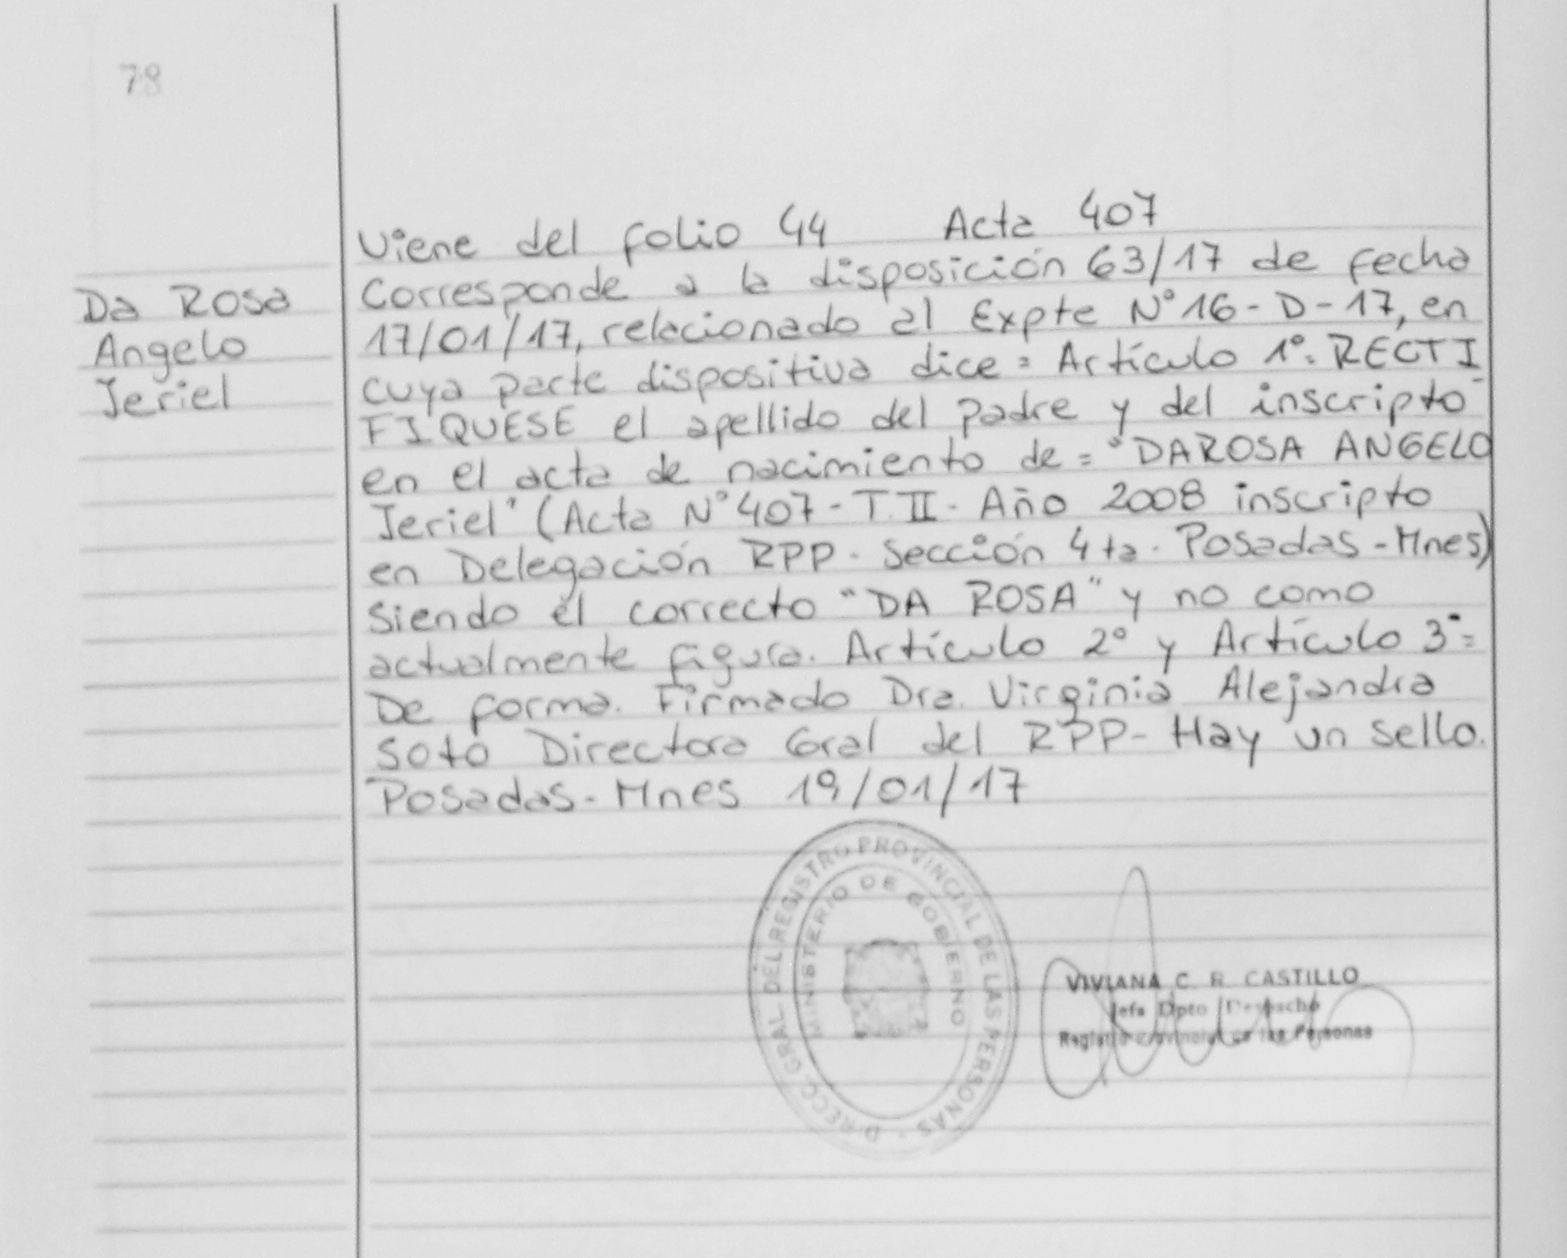 78
Da Rosa
Angelo
Jeriel
Viene del folio 44 Acta 407
Corresponde a la disposición 63/17 de fecha
17/01/17, relacionado al Expte N°16-D-17, en
cuya parte dispositiva dice: Artículo 1°: RECTI
FIQUESE el apellido del padre y del inscripto
en el acta de nacimiento de: "DAROSA ANGELO
Jeriel" (Acta N°407-T.II-Año 2008 inscripto
en Delegación RPP-Sección 4ta. Posadas-Mnes)
siendo el correcto "DA ROSA" y no como
actualmente figura. Artículo 2° y Artículo 3°:
De forma. Firmado Dra. Virginia Alejandra
Soto Directora Gral del RPP-Hay un sello.
Posadas-Mnes 19/01/17
DIRECC. GRAL. DEL REGISTRO PROVINCIAL DE LAS PERSONAS
MINISTERIO DE GOBIERNO
VIVIANA C. R. CASTILLO
Jefa Dpto Despacho
Registro Provincial de las Personas